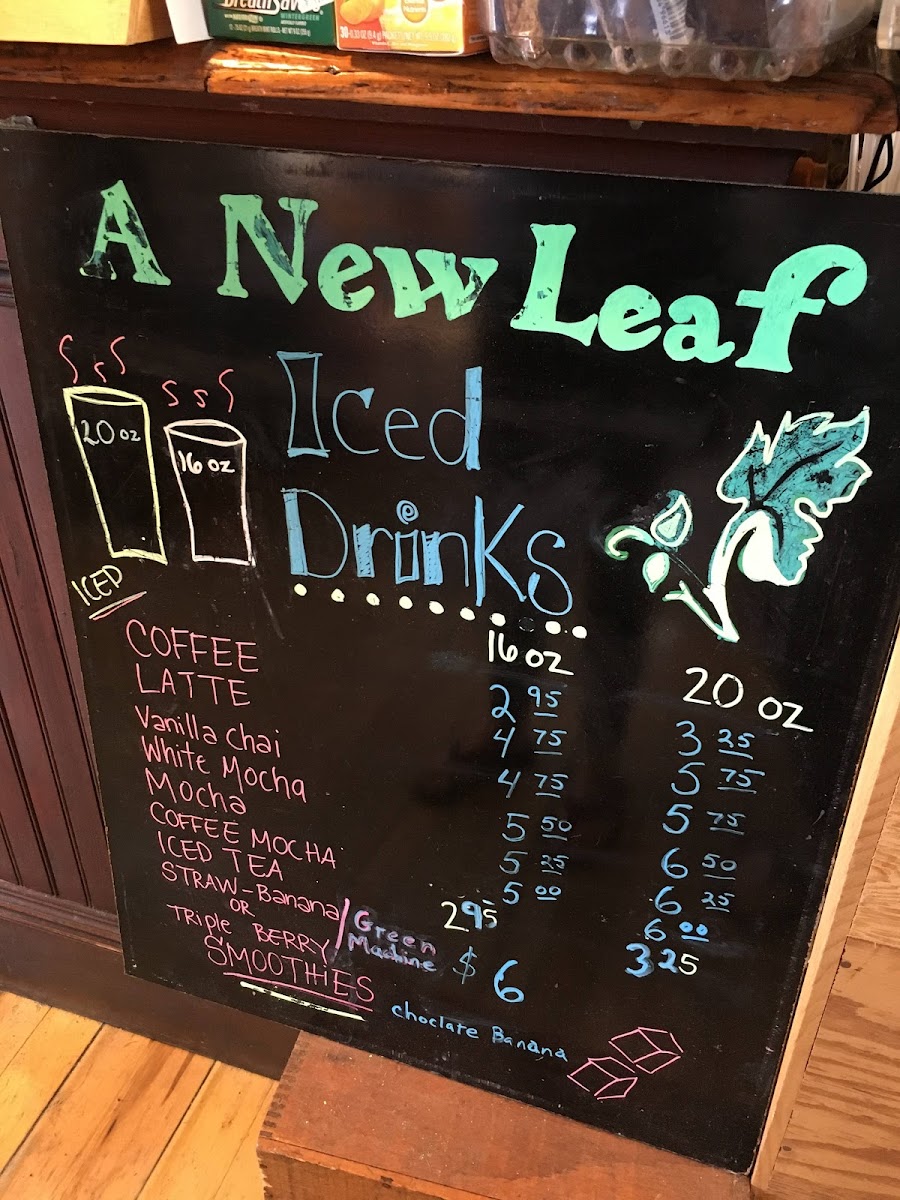 BreathSavers
WINTERGREEN
A New Leaf
20 oz
16 oz
Iced
Drinks
ICED
16 oz
20 oz
COFFEE 2 95 3 25
LATTE 4 75 5 75
Vanilla Chai 4 75 5 75
White Mocha 5 50 6 50
Mocha 5 25 6 25
COFFEE MOCHA 5 00 6 00
ICED TEA 295 325
STRAW-Banana / Green
OR
TRIPle BERRY Machine
SMOOTHIES $ 6
choclate Banana